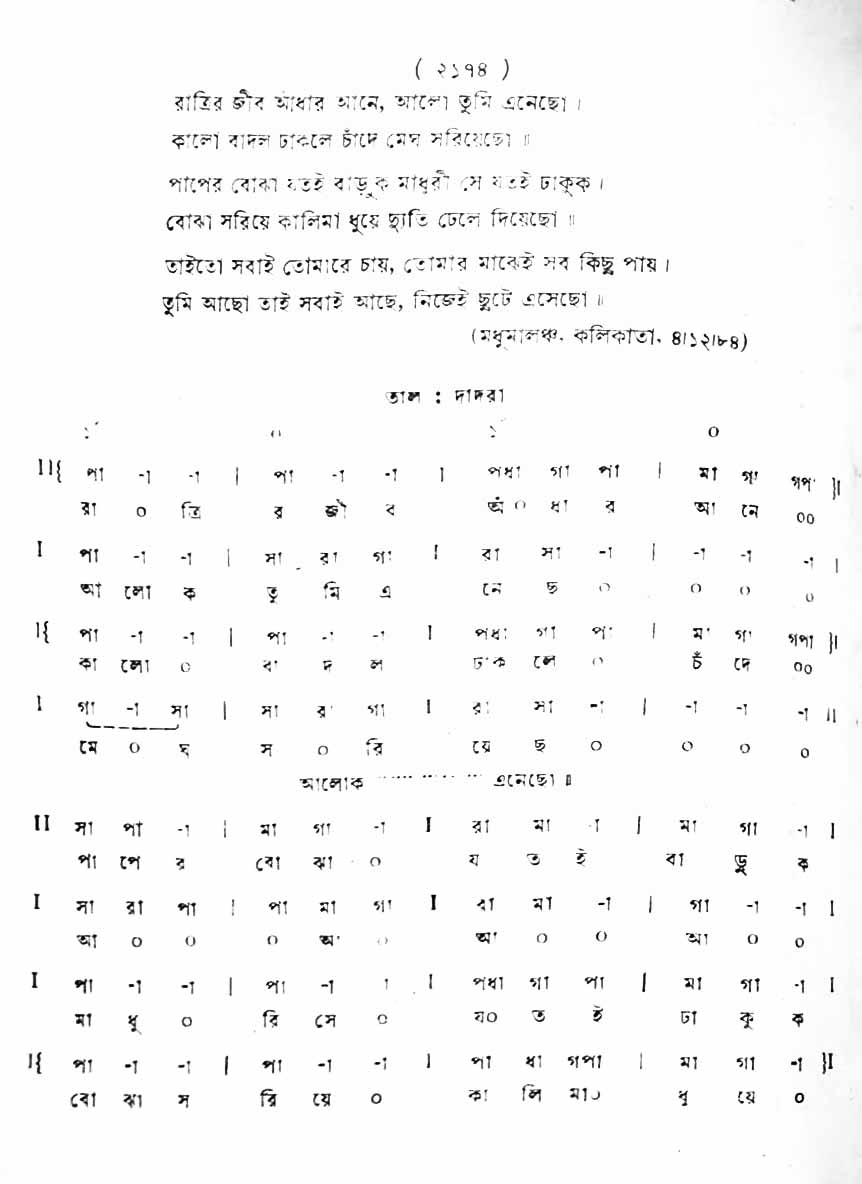 ( ২১৭৪ )
রাত্রির জীব আঁধার আনে, আলো তুমি এনেছো ।
কালো বাদল ঢাকলে চাঁদে মেঘ সরিয়েছো ॥
পাপের বোঝা যতই বাড়ুক মাধুরী সে যতই ঢাকুক ।
বোঝা সরিয়ে কালিমা ধুয়ে দ্যুতি ঢেলে দিয়েছো ॥
তাইতো সবাই তোমারে চায়, তোমার মাঝেই সব কিছু পায় ।
তুমি আছো তাই সবাই আছে, নিজেই ছুটে এসেছো ॥
(মধুমালঞ্চ, কলিকাতা, ৪।১২।৮৪)
তাল : দাদরা
১´ ০ ১´ ০
II{ পা -া -া | পা -া -া I পধা গা পা | মা গা গপা }I
রা ০ ত্রি র জী ব আঁ ০ ধা র আ নে ০০
I পা -া -া | সা রা গা I রা সা -া | -া -া -া I
আ লো ক তু মি এ নে ছ ০ ০ ০ ০
I{ পা -া -া | পা -া -া I পধা গা পা | মা গা গপা }I
কা লো ০ বা দ ল ঢাক লে ০ চাঁ দে ০০
I গা -া সা | সা রা গা I রা সা -া | -া -া -া II
মে ০ ঘ স ০ রি য়ে ছ ০ ০ ০ ০
আলোক ............ এনেছো ॥
II সা পা -া | মা গা -া I রা মা -া | মা গা -া I
পা পে র বো ঝা ০ য ত ই বা ড়ু ক
I সা রা পা | পা মা গা I রা মা -া | গা -া -া I
আ ০ ০ ০ আ ০ আ ০ ০ আ ০ ০
I পা -া -া | পা -া -া I পধা গা পা | মা গা -া I
মা ধু ০ রি সে ০ য০ ত ই ঢা কু ক
I{ পা -া -া | পা -া -া I পা ধা গপা | মা গা -া }I
বো ঝা স রি য়ে ০ কা লি মা০ ধু য়ে ০